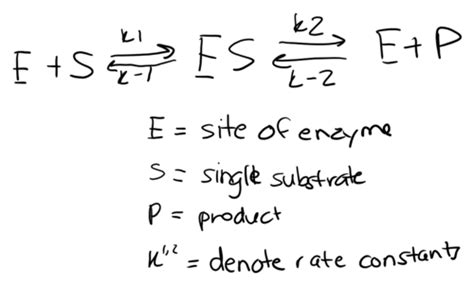 E + S ⇌ ES ⇌ E + P
k1 k-1 k2 k-2
E = site of enzyme
S = single substrate
P = product
k1,2 = denote rate constants